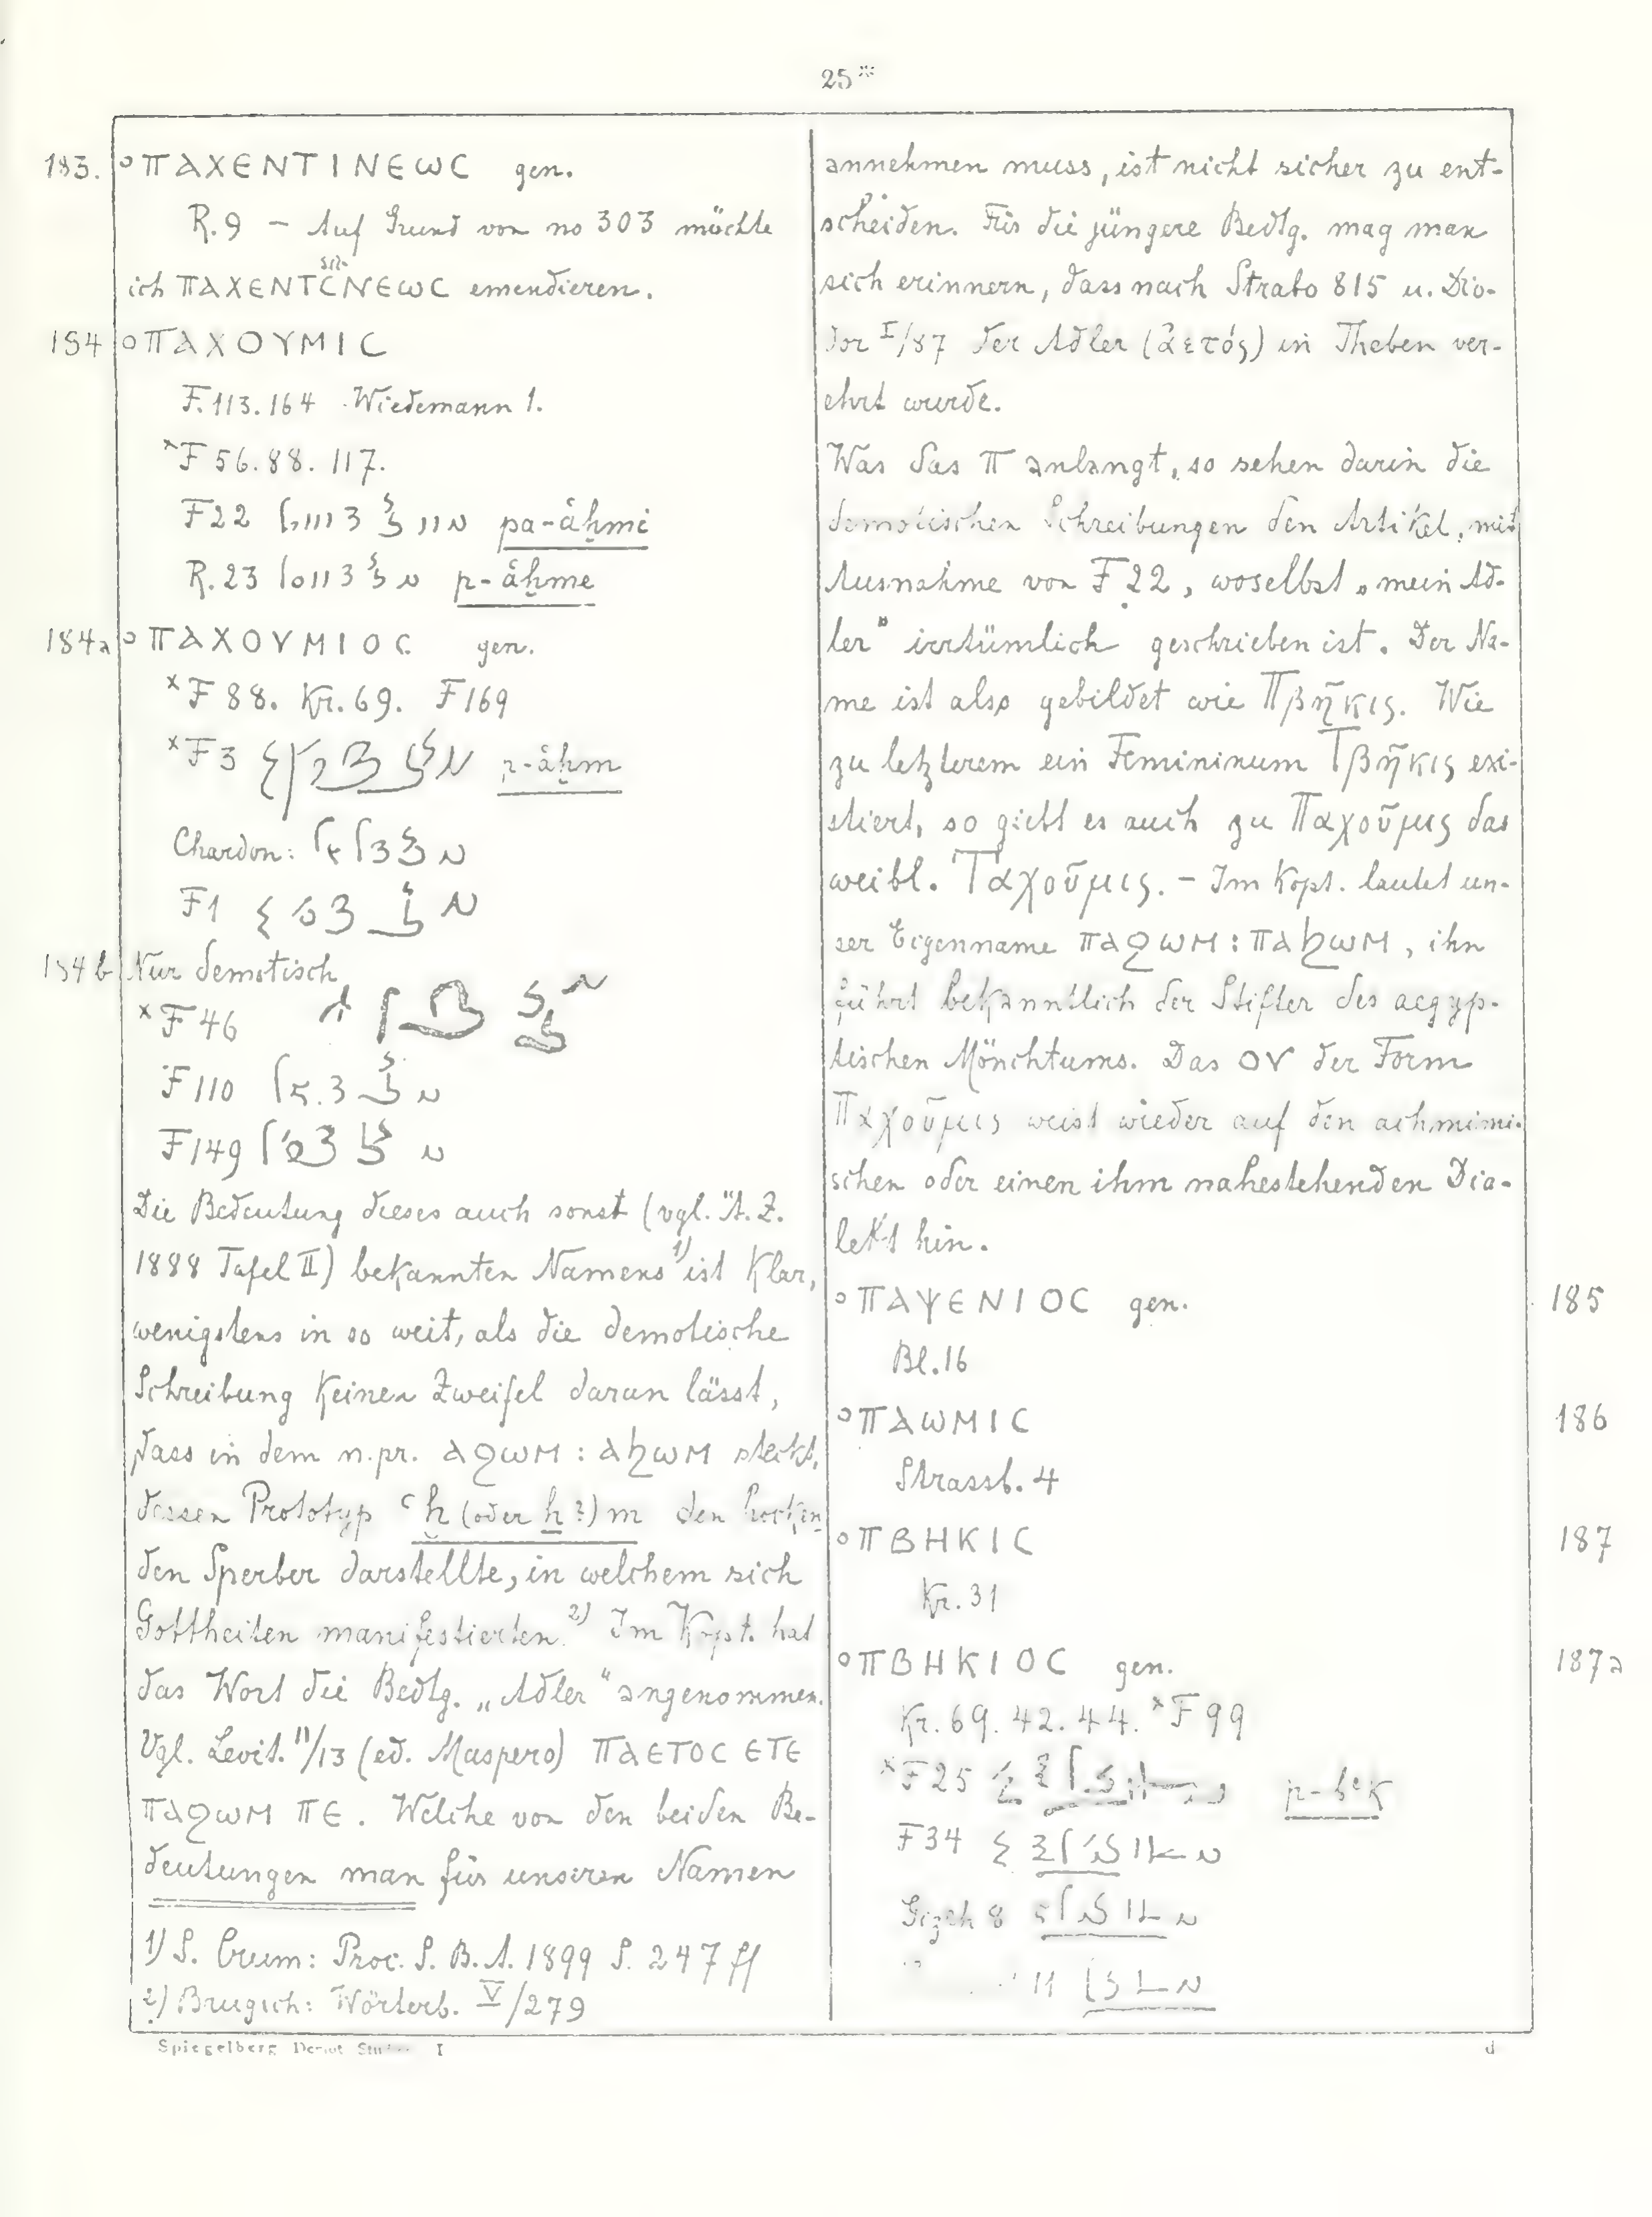 25*
183. °ΠΑΧΕΝΤΙΝΕωC gen.
R. 9 – Auf Grund von no 303 möchte
ich ΠΑΧΕΝΤCΝΕωC emendieren.
184 °ΠΑΧΟΥΜΙC
F. 113. 164 Wiedemann 1.
×F 56. 88. 117.
F 22 pa-åẖmi
R. 23 p-åẖme
184a °ΠΑΧΟΥΜΙΟC gen.
×F 88. Kr. 69. F 169
×F 3 p-åẖm
Chardon:
F 1
184b Nur demotisch
×F 46
F 110
F 149
Die Bedeutung dieses auch sonst (vgl. Ä. Z.
1888 Tafel II) bekannten Namens 1) ist klar,
wenigstens in so weit, als die demotische
Schreibung keinen Zweifel daran lässt,
dass in dem n. pr. ⲁϩⲱⲙ : ⲁϧⲱⲙ steckt,
dessen Prototyp ꜥḫ (oder ẖ?) m den hocken
den Sperber darstellte, in welchem sich
Gottheiten manifestierten. 2) Im Kopt. hat
das Wort die Bedtg. „Adler“ angenommen.
Vgl. Levit. 11/13 (ed. Maspero) ⲡⲁⲉⲧⲟⲥ ⲉⲧⲉ
ⲡⲁϩⲱⲙ ⲡⲉ. Welche von den beiden Be-
deutungen man für unseren Namen
1) S. Crum: Proc. S. B. A. 1899 S. 247 ff
2) Brugsch: Wörterb. V/279
annehmen muss, ist nicht sicher zu ent-
scheiden. Für die jüngere Bedtg. mag man
sich erinnern, dass nach Strabo 815 u. Dio-
dor I/87 der Adler (ἀετός) in Theben ver-
ehrt wurde.
Was das Π anlangt, so sehen darin die
demotischen Schreibungen den Artikel, mit
Ausnahme von F 22, woselbst „mein Ad-
ler“ irrtümlich geschrieben ist. Der Na-
me ist also gebildet wie Πβῆκις. Wie
zu letzterem ein Femininum Τβῆκις exi-
stiert, so giebt es auch zu Παχοῦμις das
weibl. Ταχοῦμις. – Im Kopt. lautet un-
ser Eigenname ⲡⲁϩⲱⲙ : ⲡⲁϧⲱⲙ, ihn
führt bekanntlich der Stifter des aegyp-
tischen Mönchtums. Das ΟΥ der Form
Παχοῦμις weist wieder auf den achmimi-
schen oder einen ihm nahestehenden Dia-
lekt hin.
°ΠΑΨΕΝΙΟC gen. 185
Bl. 16
°ΠΑωΜΙC 186
Strassb. 4
°ΠΒΗΚΙC 187
Kr. 31
°ΠΒΗΚΙΟC gen. 187a
Kr. 69. 42. 44. ×F 99
×F 25 p-bek
F 34
Gizeh 8
11
Spiegelberg Demot Studien I d